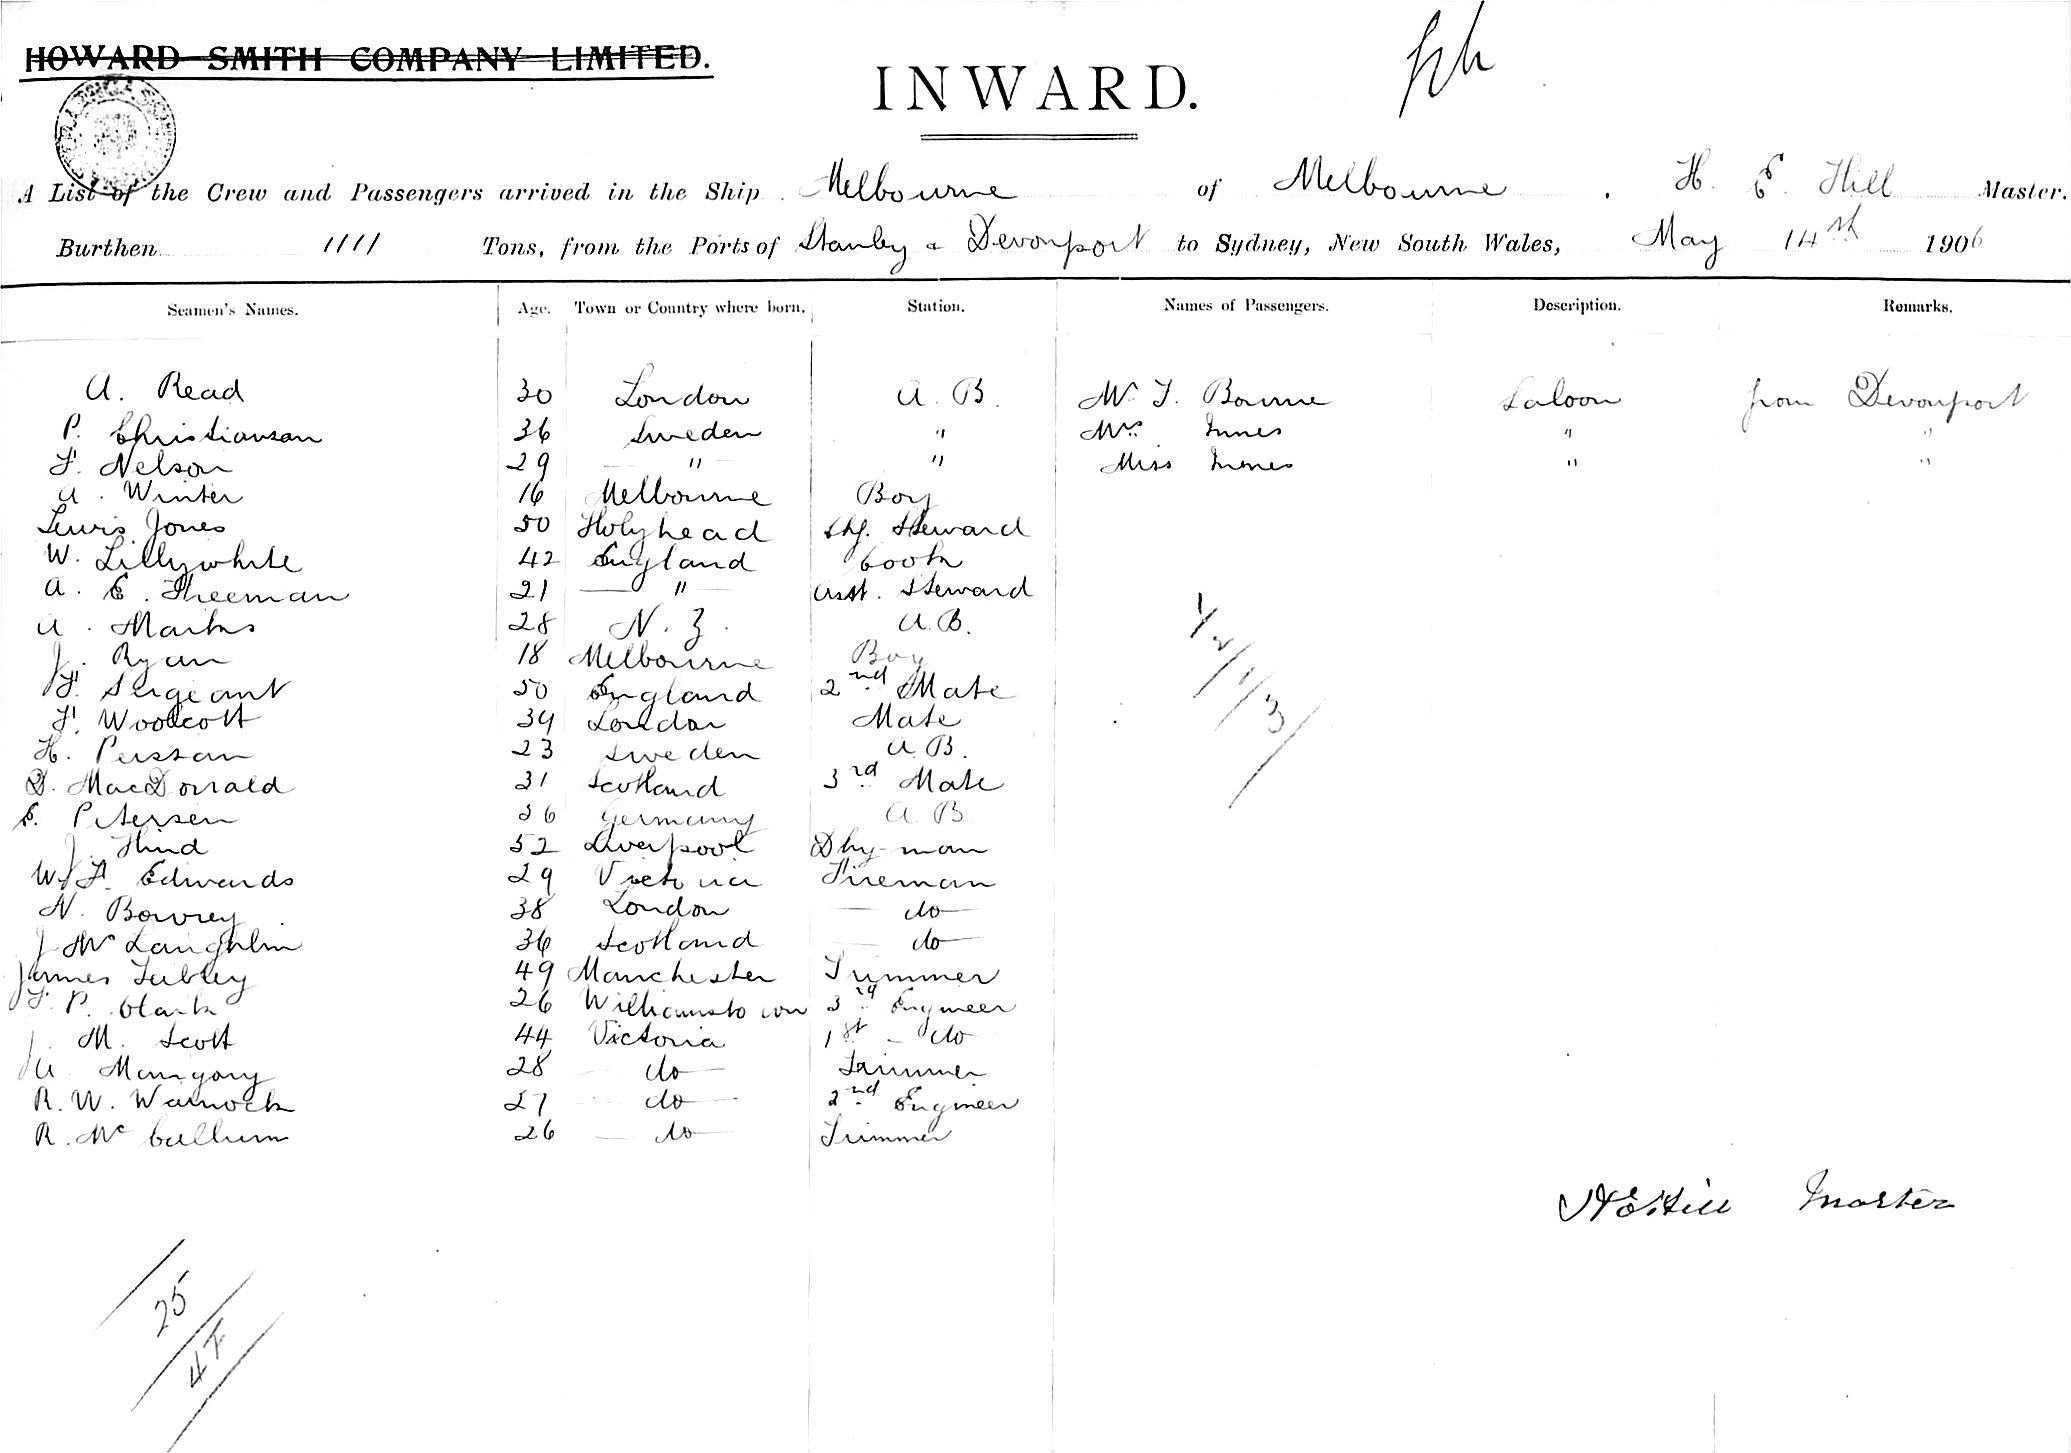 HOWARD SMITH COMPANY LIMITED.
INWARD.
A List of the Crew and Passengers arrived in the Ship Melbourne of Melbourne, H. E. Hill Master.
Burthen 1111 Tons, from the Ports of Stanley & Devonport to Sydney, New South Wales, May 14th 1906
Seamen's Names. Age. Town or Country where born. Station. Names of Passengers. Description. Remarks.
A. Read 30 London A. B. Mr. T. Bourne Saloon from Devonport
P. Christianson 36 Sweden " Mrs. Innes " "
F. Nelson 29 " " Miss Innes " "
A. Winter 16 Melbourne Boy
Lewis Jones 50 Holyhead Chf. Steward
W. Lillywhite 42 England Cook
A. E. Freeman 21 " Asst. Steward
A. Marks 28 N. Z. A. B.
J. Ryan 18 Melbourne Boy
F. Sergeant 50 England 2nd Mate
F. Woolcott 39 London Mate
H. Persson 23 Sweden A. B.
D. MacDonald 31 Scotland 3rd Mate
E. Petersen 26 Germany A. B.
J. Hind 52 Liverpool Dky-man
W. F. Edwards 29 Victoria Fireman
N. Bowrey 38 London do
J McLaughlin 36 Scotland do
James Tubley 49 Manchester Trimmer
F. P. Clark 26 Williamstown 3rd Engineer
J. M. Scott 44 Victoria 1st do
A Mangony 28 do Trimmer
R. W. Warnock 27 do 2nd Engineer
R. McCallum 26 do Trimmer
1/2/1/3/
H E Hill Master
25
47